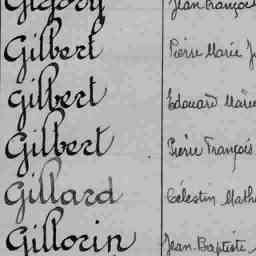 Grégory Jean François
Gilbert Pierre Marie
Gilbert Edouard Marie
Gilbert Pierre François
Gillard Célestin Math
Gillorin Jean Baptiste